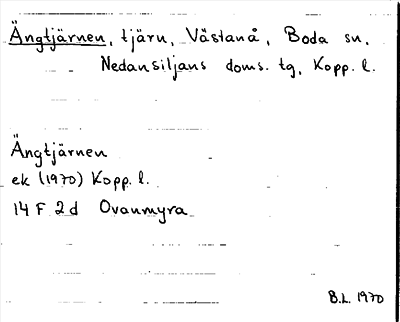 Ängtjärnen, tjärn, Västanå, Boda sn,
Nedansiljans doms. tg, Kopp. l.
Ängtjärnen
ek (1970) Kopp. l.
14 F 2d Ovanmyra
B.L. 1970